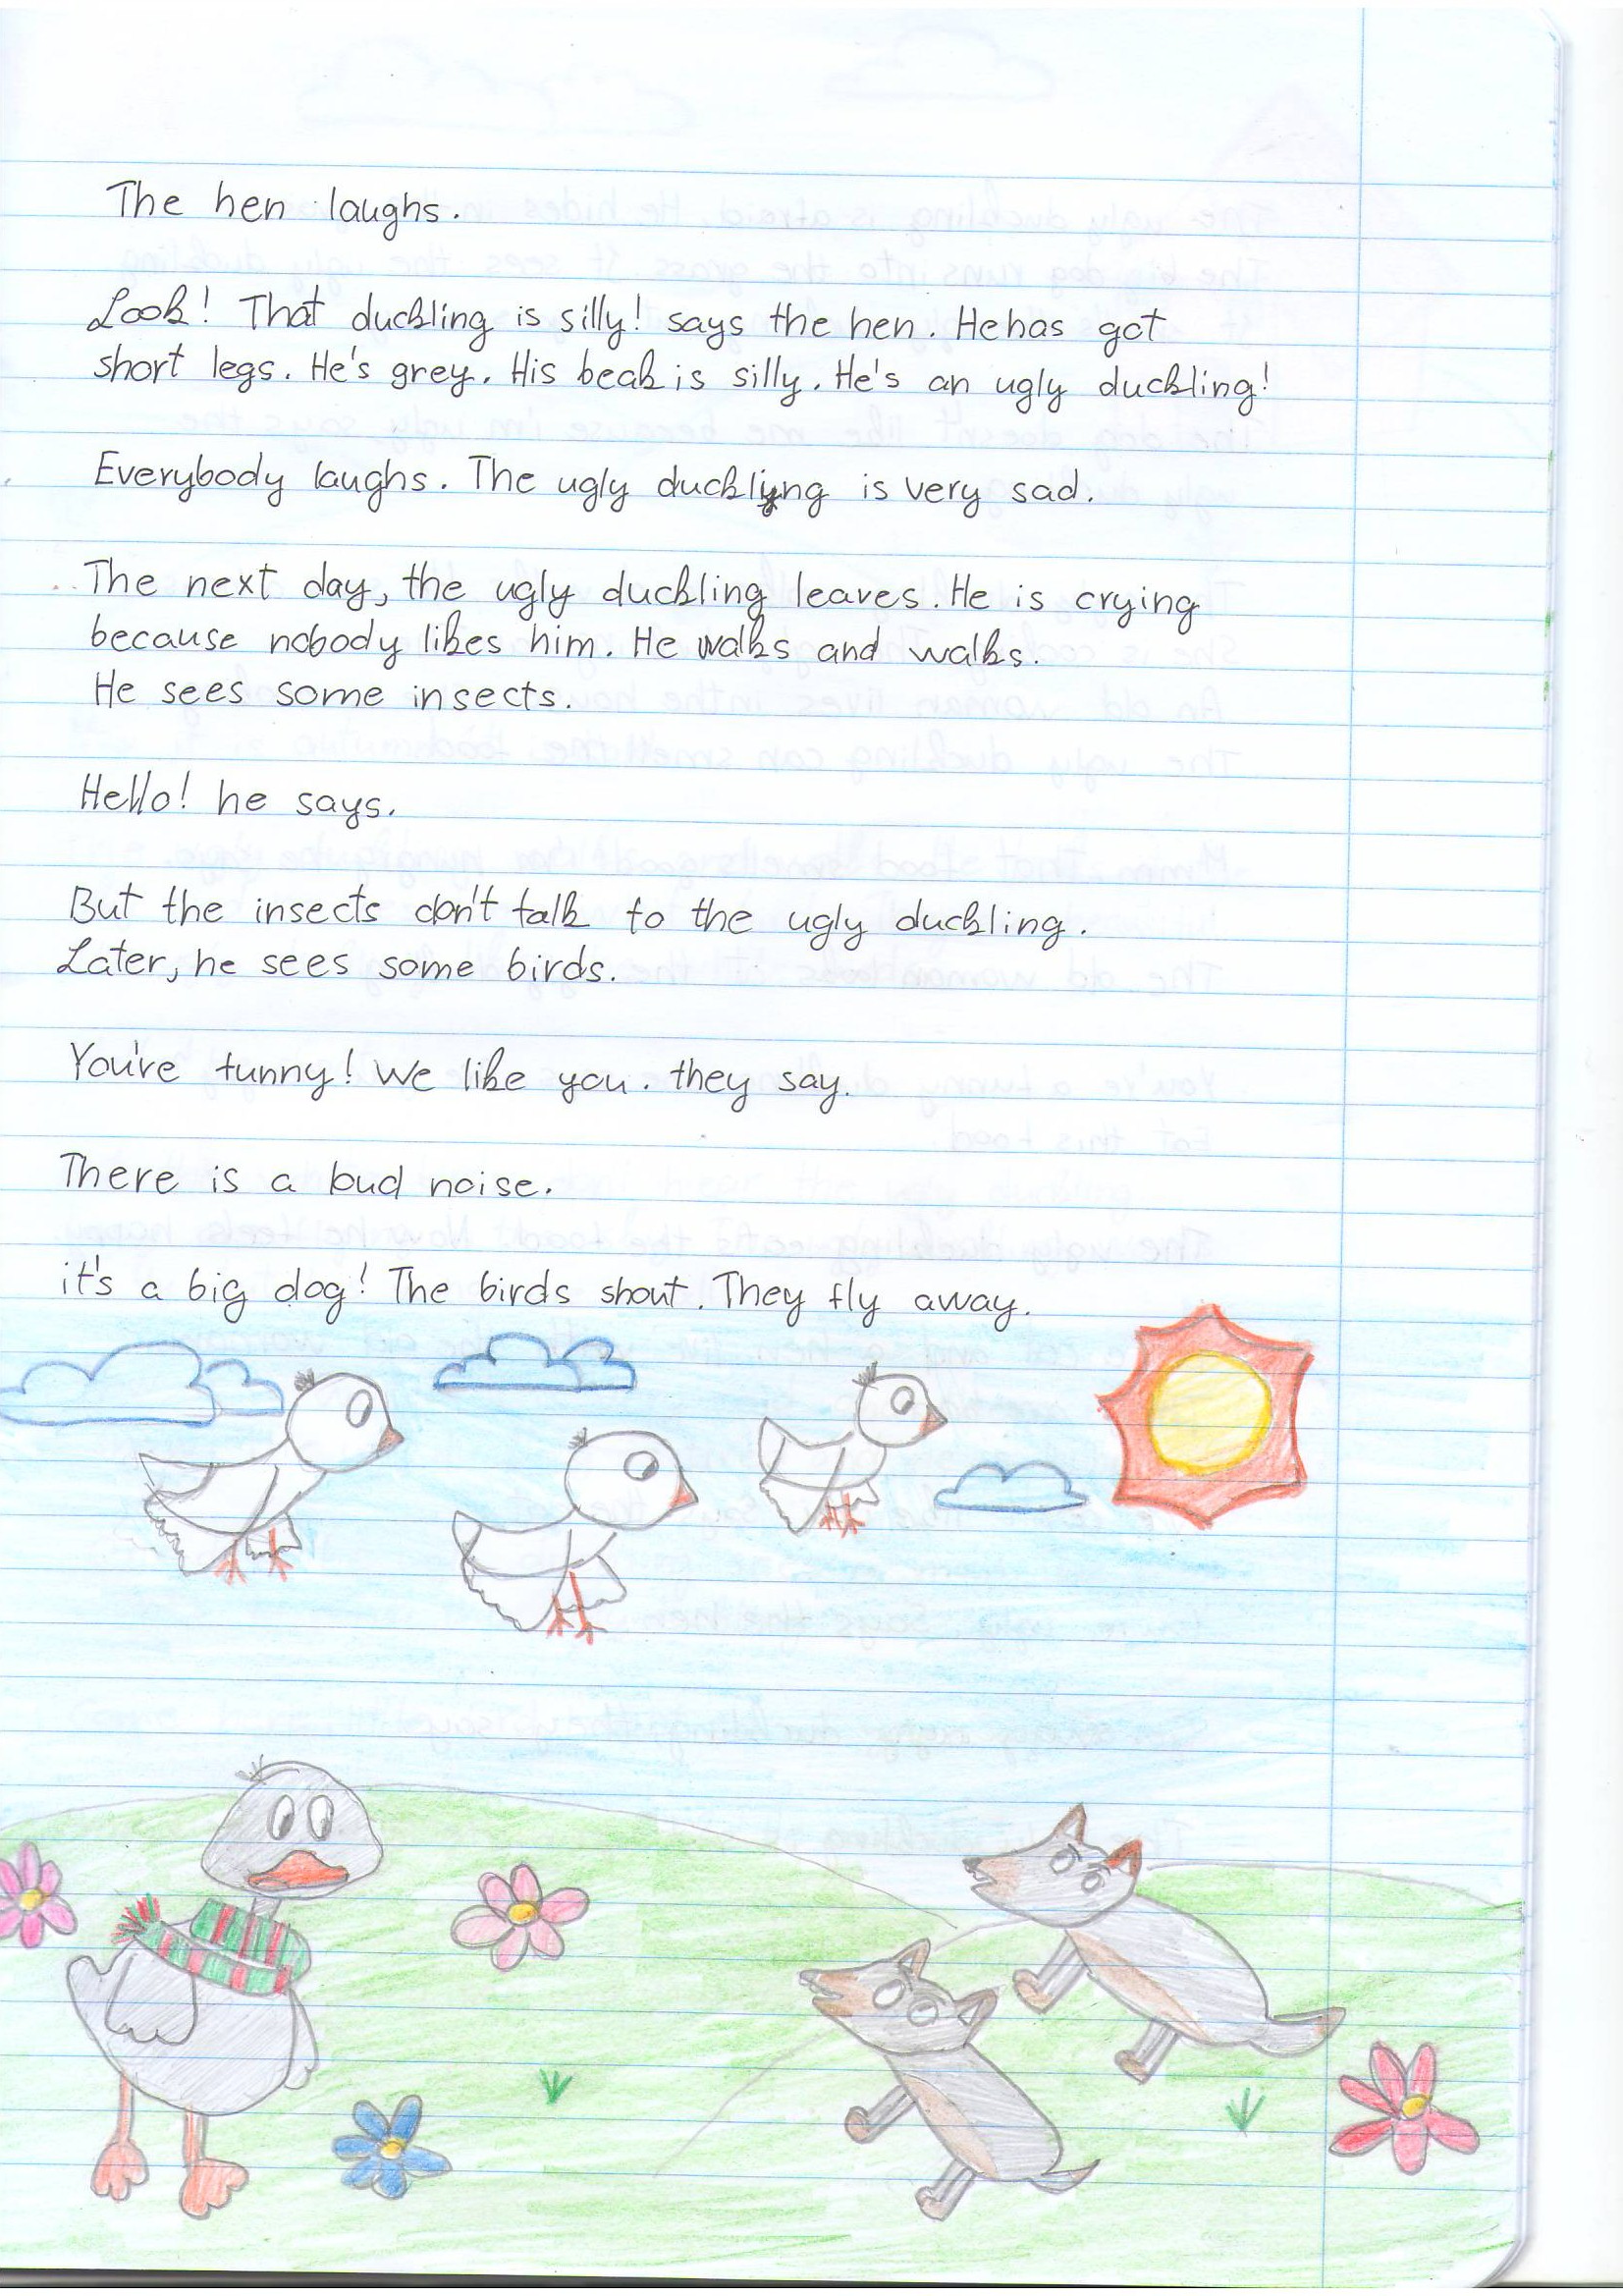 The hen laughs.
Look! That duckling is silly! says the hen. He has got
short legs. He's grey. His beak is silly. He's an ugly duckling!
Everybody laughs. The ugly duckling is very sad.
The next day, the ugly duckling leaves. He is crying
because nobody likes him. He walks and walks.
He sees some insects.
Hello! he says.
But the insects don't talk to the ugly duckling.
Later, he sees some birds.
You're funny! We like you. they say.
There is a loud noise.
it's a big dog! The birds shout. They fly away.